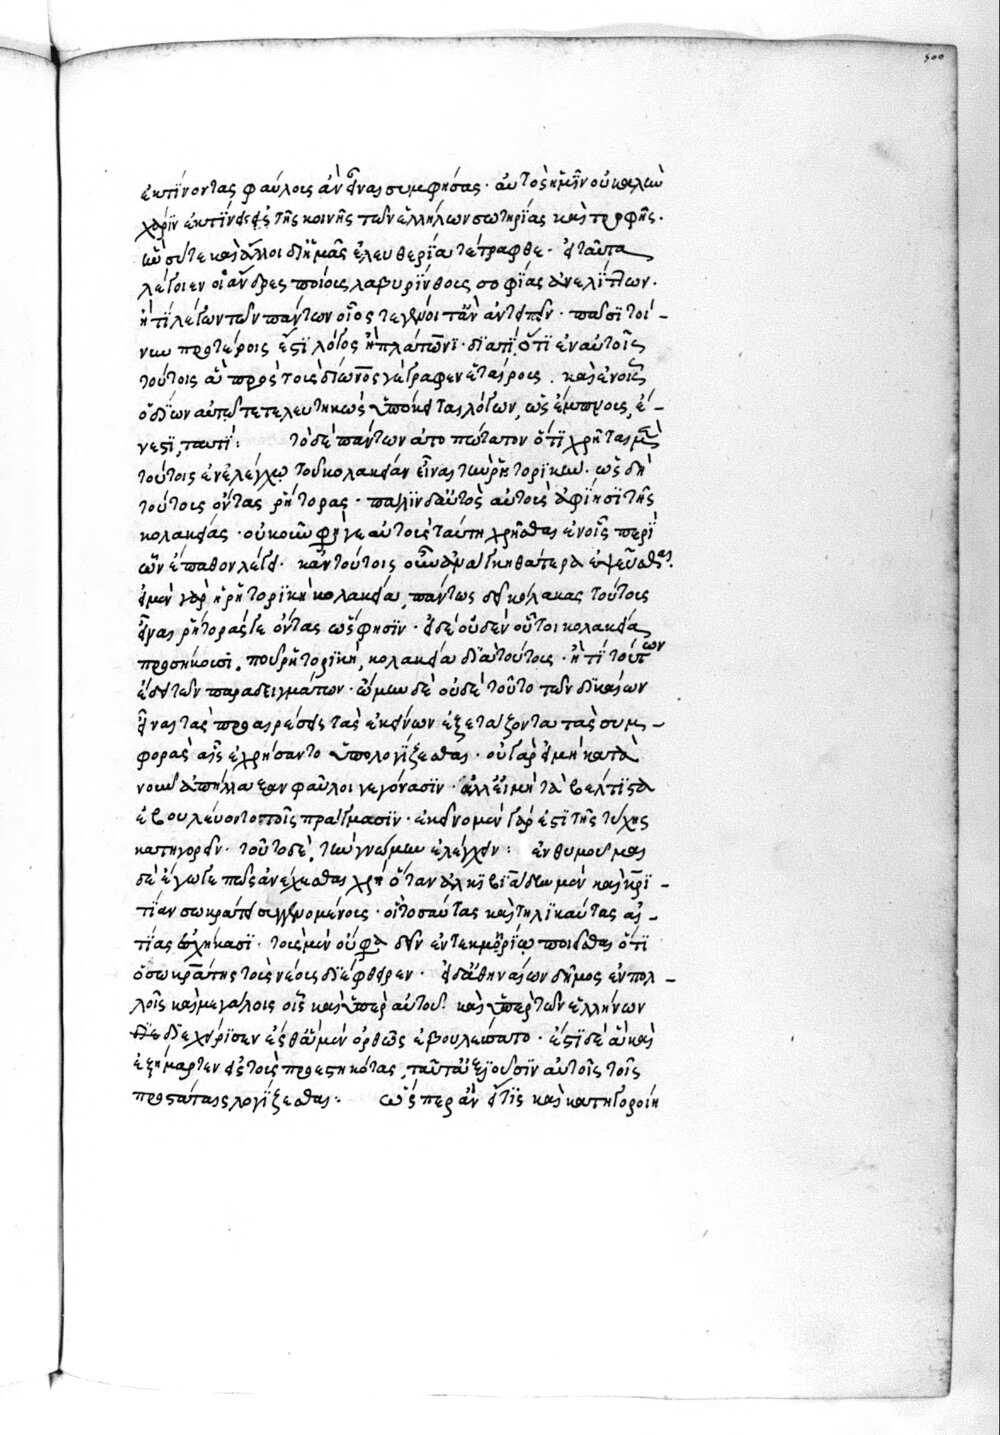 300
ἐκτίνοντας φαύλοις ἂν εἶναι συμφήσας. αὐτὸς ἡμῖν οὐ καλὴν
χάριν ἐκτίνεις τῆς κοινῆς τῶν ἑλλήνων σωτηρίας καὶ τροφῆς.
ὧ σύ τε καὶ ἄλλοι δι' ἡμᾶς ἐλευθερία τέτραφθε. εἰ ταῦτα
λέγοιεν οἱ ἄνδρες ποίοις λαβυρίνθοις σοφίας ἀνελίττων.
ἢ τί λέγων τῶν πάντων οἷός τε γένοιτ' ἂν ἀντειπεῖν. πᾶσι τοί-
νυν προτέροις ἔστι λόγος ἢ πλάτωνι. διατί; ὅτι ἐν αὐτοῖς
τούτοις ἃ πρὸς τοὺς δίωνος γέγραφεν ἑταίρους. καὶ ἐν οἷς
ὁ δίων αὐτῶ τετελευτηκὼς ὑπόκειται λέγων, ὡς ἔμπνους, ἔ-
νεστι, ταυτί: τὸ δὲ πάντων ἀτοπώτατον ὅτι χρῆται μὲν
τούτοις ἐν ἐλέγχω τοῦ κολακείαν εἶναι τὴν ῥητορικὴν. ὡς δὴ
τούτοις ὄντας ῥήτορας. πάλιν δ' αὐτὸς αὐτοὺς ἀφίησι τῆς
κολακείας. οὐκοῦν φησί γε αὐτοὺς ταύτη χρῆσθαι ἐν οἷς περὶ
ὧν ἔπαθον λέγει. κἂν τούτοις οὖν ἀνάγκη θάτερα ἐψεῦσθαι.
εἰ μὲν γὰρ ἡ ῥητορικὴ κολακεία, πάντως δεῖ κόλακας τούτους
εἶναι ῥήτοράς γε ὄντας ὥς φησιν. εἰ δὲ οὐδὲν οὗτοι κολακεία
προσήκουσι, ποῦ ῥητορική, κολακεία διὰ τούτους. ἢ τί τούτων
ἔδει τῶν παραδειγμάτων. ὤμην δὲ οὐδὲ τοῦτο τῶν δικαίων
εἶναι τὰς προαιρέσεις τὰς ἐκείνων ἐξετάζοντα τὰς συμ-
φορὰς αἷς ἐχρήσαντο ὑπολογίζεσθαι. οὐ γὰρ εἰ μὴ κατὰ
νοῦν ἀπήλλαξαν φαῦλοι γεγόνασιν. ἀλλ' εἰ μὴ τὰ βέλτιστα
ἐβουλεύοντο τοῖς πράγμασιν. ἐκεῖνο μὲν γάρ ἐστι τῆς τύχης
κατηγορεῖν. τοῦτο δὲ, τὴν γνώμην ἐλέγχειν: ἐνθυμοῦμαι
δὲ ἔγωγε πῶς ἀνέχεσθαι χρὴ ὅταν ἀλκιβιάδην μὲν καὶ κρι-
τίαν σωκράτει συγγενομένους. οἳ τοσαύτας καὶ τηλικαύτας αἰ-
τίας ἐσχήκασι. τοῖς μὲν οὔ φασι δεῖν ἐν τεκμηρίω ποιεῖσθαι ὅτι
ὁ σωκράτης τοὺς νέους διέφθειρεν. εἰ δ' ἀθηναίων δῆμος ἐν πολ-
λοῖς καὶ μεγάλοις οἷς καὶ ὑπὲρ αὐτοῦ καὶ ὑπὲρ τῶν ἑλλήνων
διεχείρισεν ἔσθ' ἃ μὲν ὀρθῶς ἐβουλεύσατο. ἔστι δὲ ἃ καὶ
ἐξήμαρτεν εἰς τοὺς προεστηκότας, ταῦτ' ἀξιοῦσιν αὐτοῖς τοῖς
προστάταις λογίζεσθαι: ὥσπερ ἂν εἴ τις καὶ κατηγοροίη